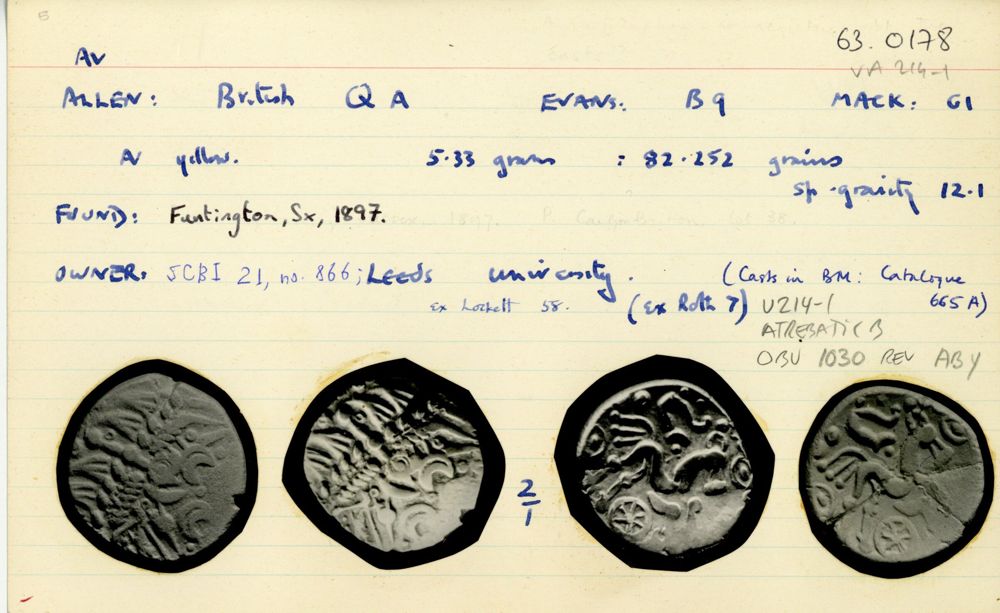 63.0178
AV VA 214-1
ALLEN: British Q A EVANS: B 9 MACK: 61
AV yellow. 5.33 grams : 82.252 grains
sp. gravity 12.1
FOUND: Funtington, Sx, 1897.
OWNER: SCBI 21, no. 866; LEEDS university. (Casts in BM: Catalogue
ex Lockett 58. (ex Roth 7) V214-1 665A)
ATREBATIC B
OBV 1030 REV ABY
2/1